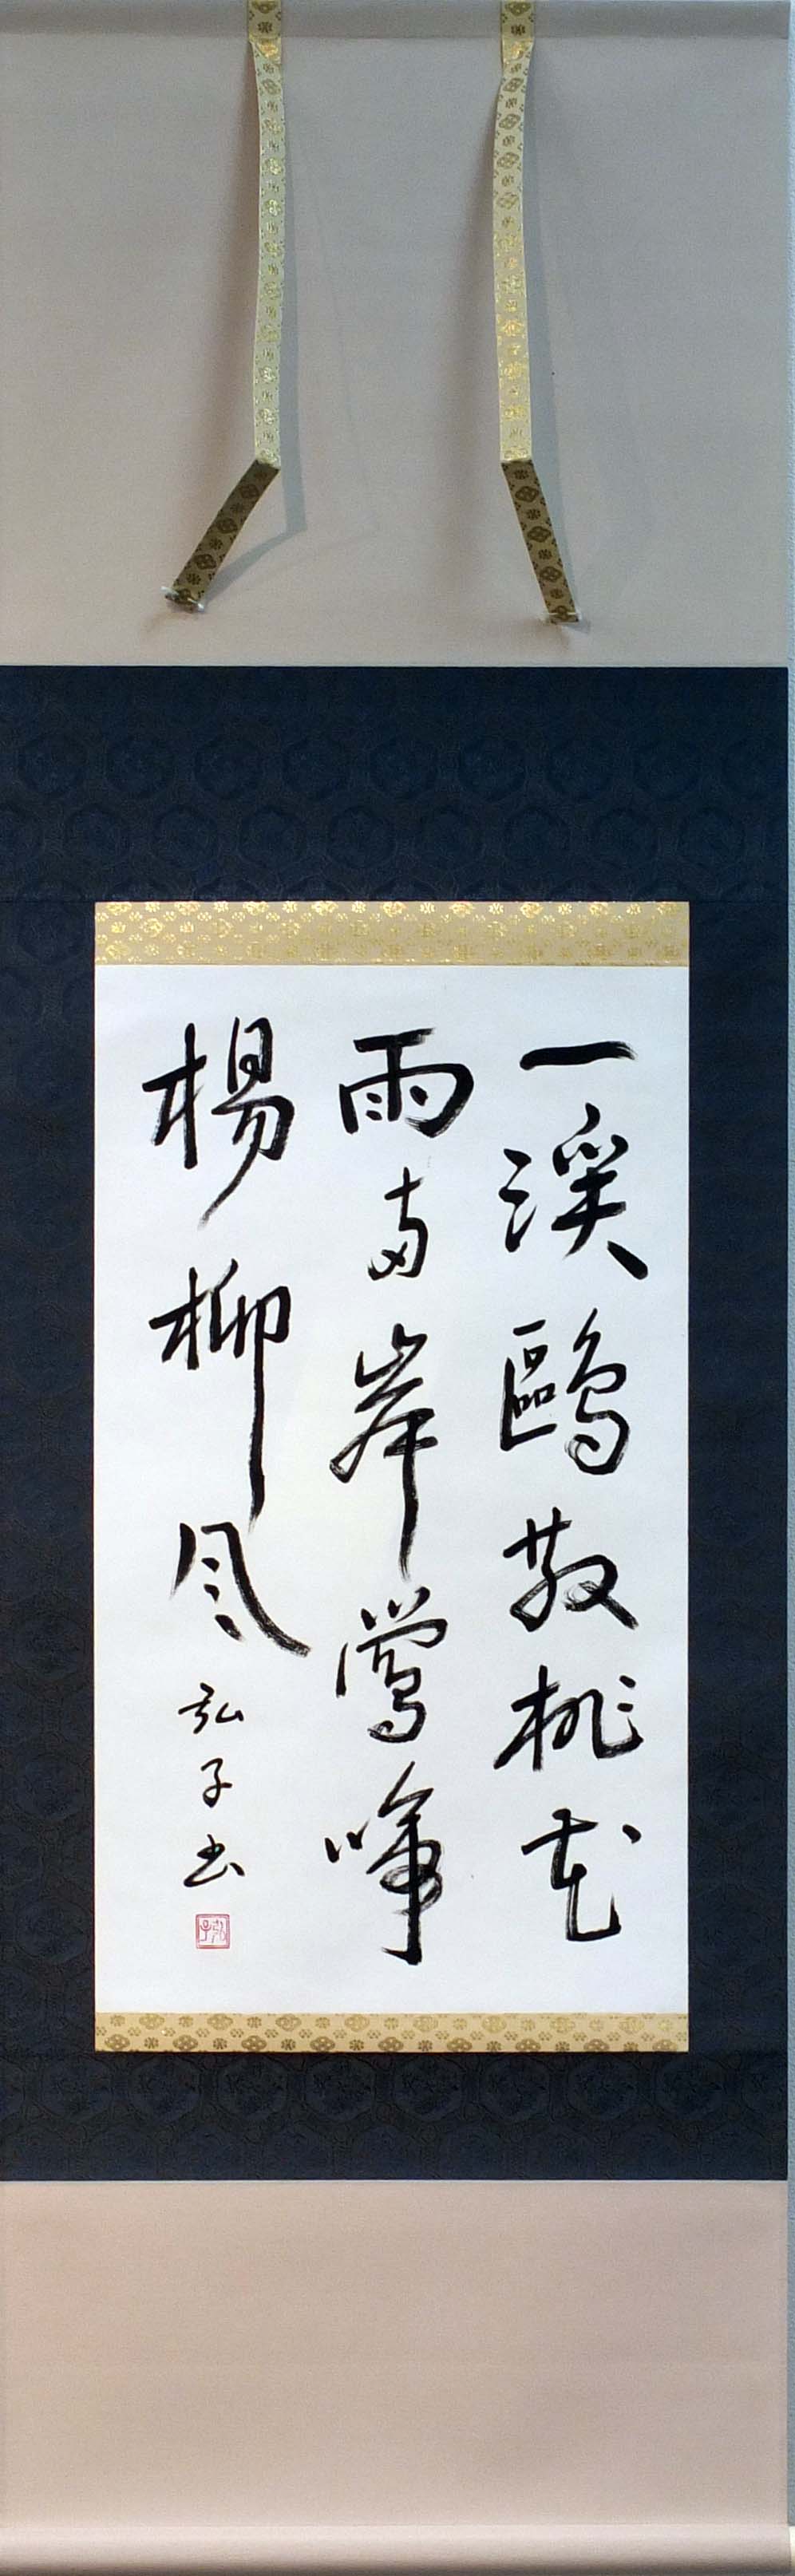 一渓鷗散桃花
雨両岸鶯啼
楊柳風
弘子書
弘子